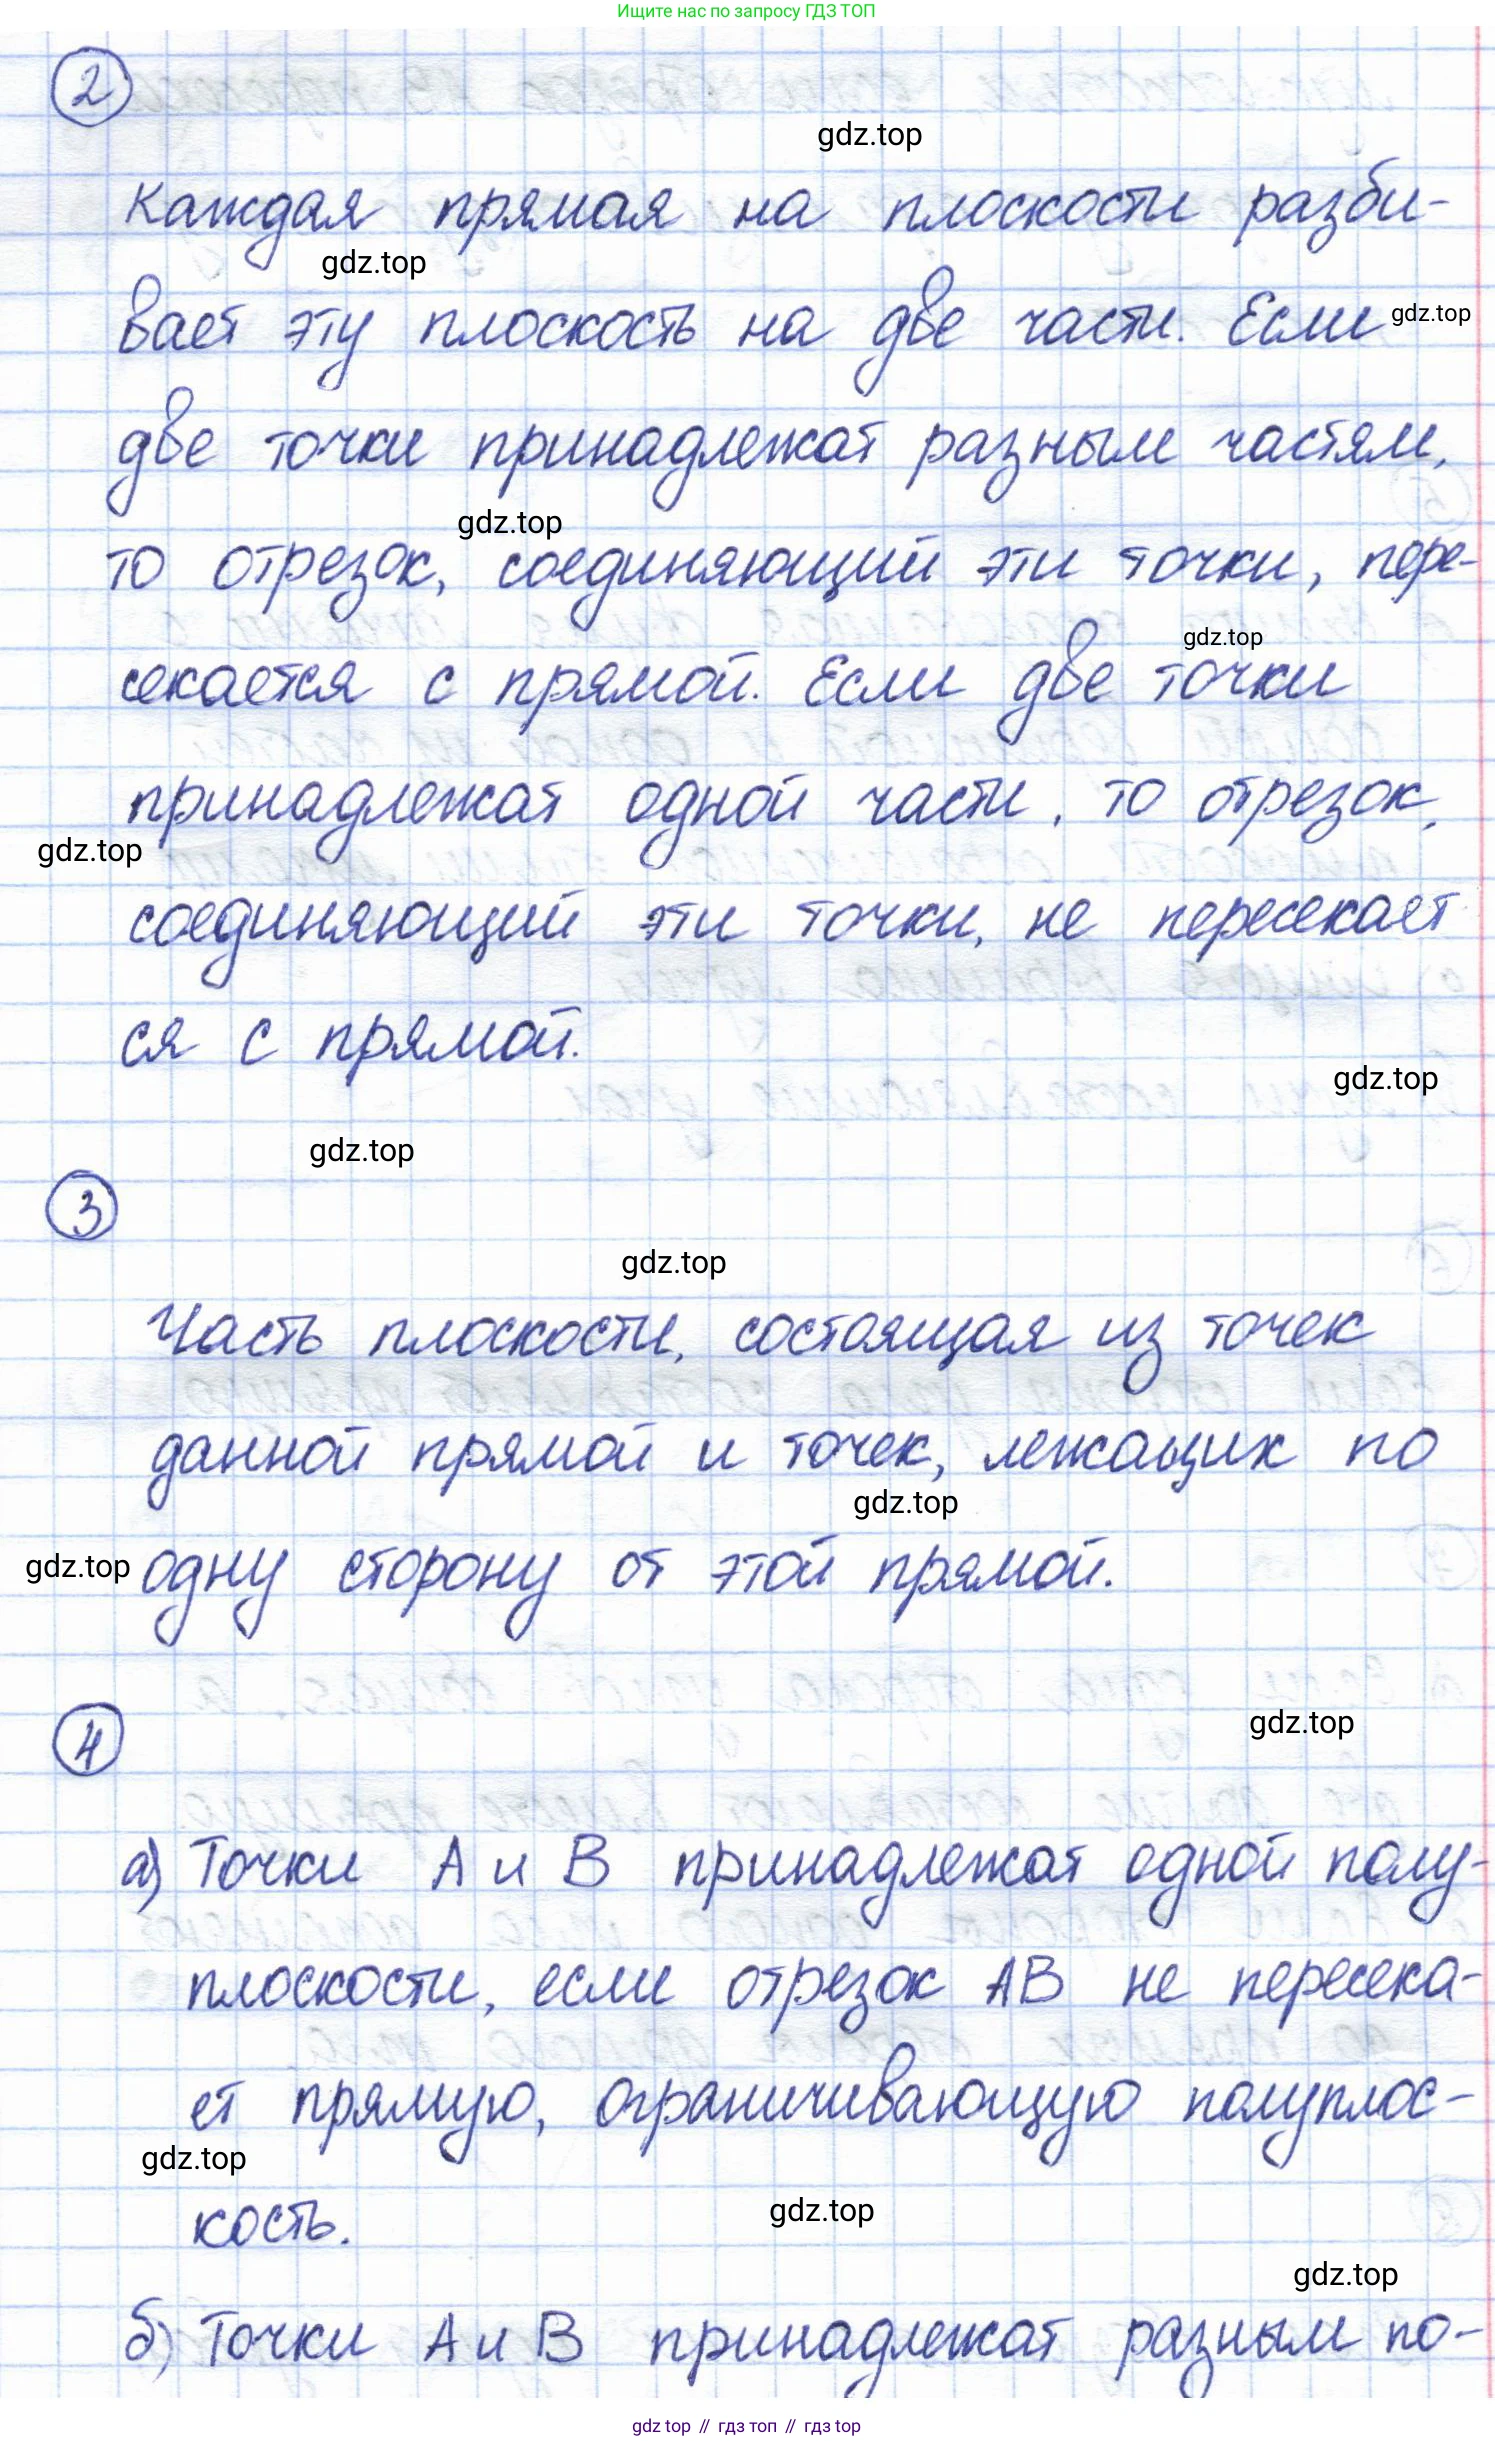 Ищите нас по запросу ГДЗ ТОП
2
gdz.top
Каждая прямая на плоскости разби-
gdz.top
вает эту плоскость на две части. Если gdz.top
две точки принадлежат разным частям,
gdz.top
то отрезок, соединяющий эти точки, пере-
gdz.top
секается с прямой. Если две точки
принадлежат одной части, то отрезок,
gdz.top
соединяющий эти точки, не пересекает
ся с прямой.
gdz.top
gdz.top
3
gdz.top
Часть плоскости, состоящая из точек
данной прямой и точек, лежащих по
gdz.top
gdz.top одну сторону от этой прямой.
gdz.top
4
а) Точки А и В принадлежат одной полу-
плоскости, если отрезок АВ не пересека-
ет прямую, ограничивающую полуплос-
gdz.top
кость.
gdz.top
gdz.top
б) Точки А и В принадлежат разным по-
gdz top // гдз топ // гдз top